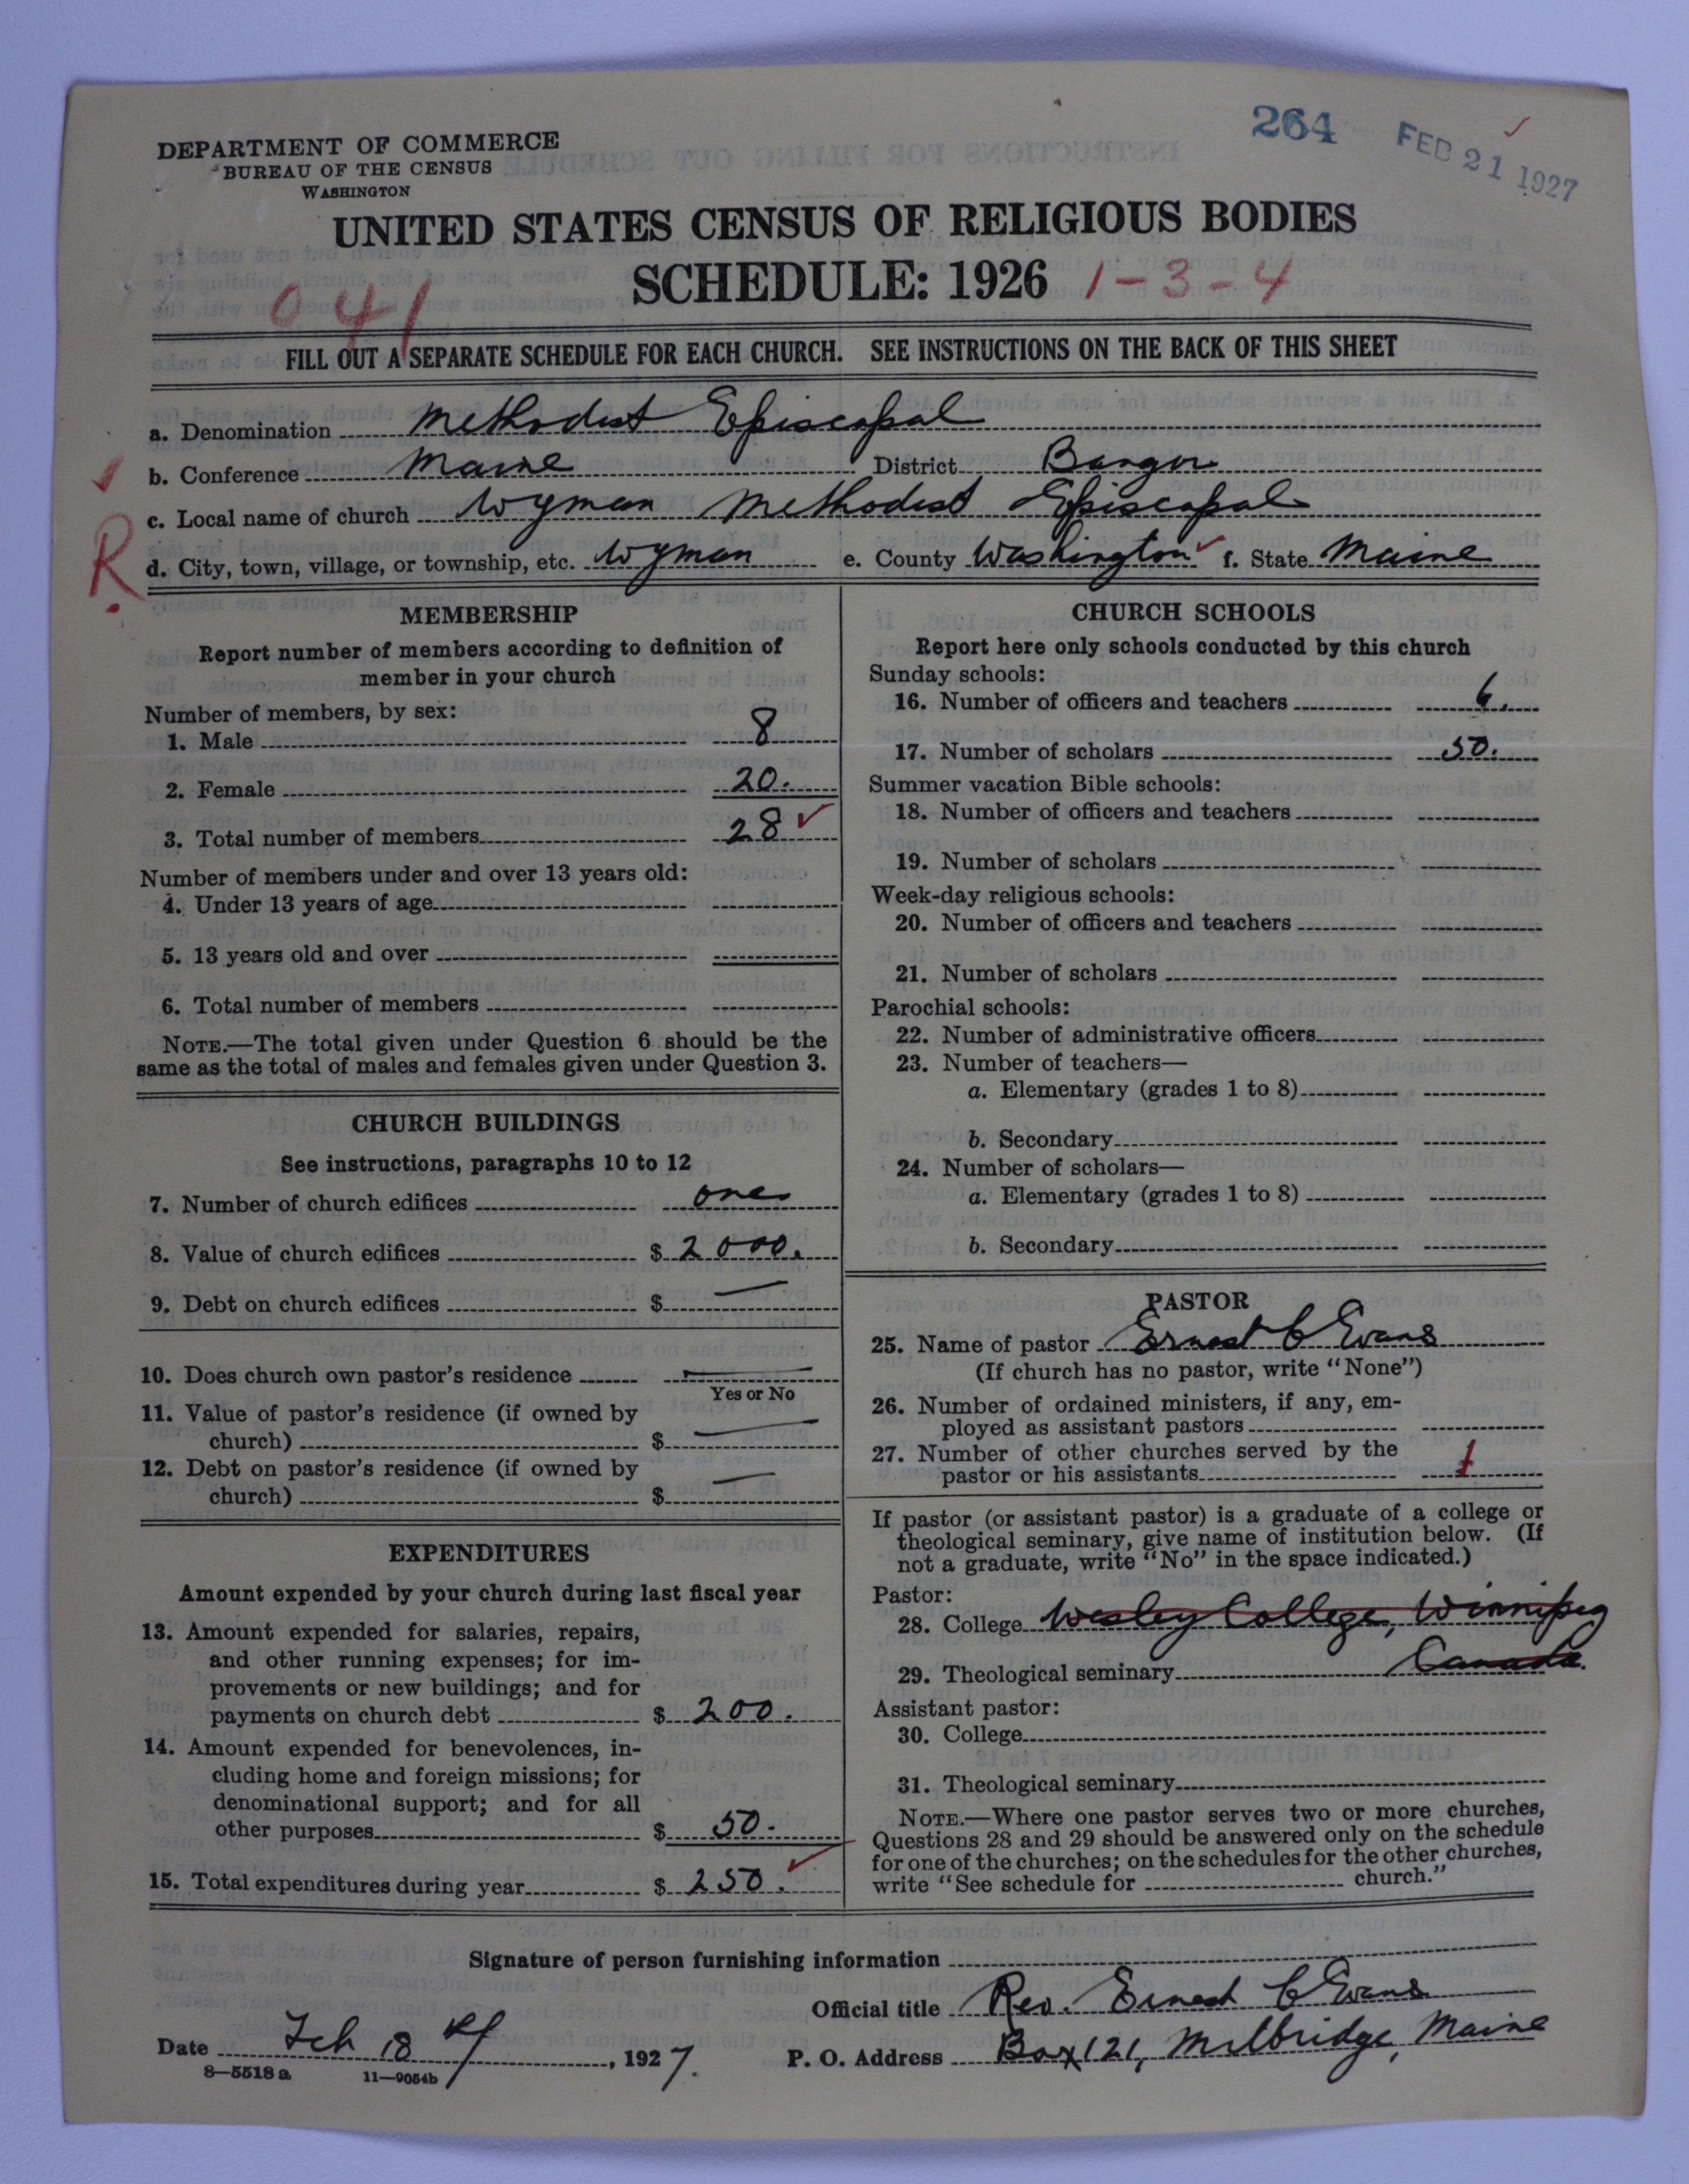 264 FEB 21 1927
DEPARTMENT OF COMMERCE
BUREAU OF THE CENSUS
WASHINGTON
UNITED STATES CENSUS OF RELIGIOUS BODIES
SCHEDULE: 1926 1-3-4
041
FILL OUT A SEPARATE SCHEDULE FOR EACH CHURCH. SEE INSTRUCTIONS ON THE BACK OF THIS SHEET
a. Denomination Methodist Episcopal
b. Conference Maine District Bangor
c. Local name of church Wyman Methodist Episcopal
R
d. City, town, village, or township, etc. Wyman e. County Washington f. State Maine
MEMBERSHIP
Report number of members according to definition of
member in your church
Number of members, by sex:
1. Male 8
2. Female 20.
3. Total number of members 28
Number of members under and over 13 years old:
4. Under 13 years of age
5. 13 years old and over
6. Total number of members
NOTE.—The total given under Question 6 should be the
same as the total of males and females given under Question 3.
CHURCH BUILDINGS
See instructions, paragraphs 10 to 12
7. Number of church edifices one
8. Value of church edifices $ 2000.
9. Debt on church edifices $ —
10. Does church own pastor's residence —
Yes or No
11. Value of pastor's residence (if owned by
church) $ —
12. Debt on pastor's residence (if owned by
church) $ —
EXPENDITURES
Amount expended by your church during last fiscal year
13. Amount expended for salaries, repairs,
and other running expenses; for im-
provements or new buildings; and for
payments on church debt $ 200.
14. Amount expended for benevolences, in-
cluding home and foreign missions; for
denominational support; and for all
other purposes $ 50.
15. Total expenditures during year $ 250.
CHURCH SCHOOLS
Report here only schools conducted by this church
Sunday schools:
16. Number of officers and teachers 6.
17. Number of scholars 50.
Summer vacation Bible schools:
18. Number of officers and teachers
19. Number of scholars
Week-day religious schools:
20. Number of officers and teachers
21. Number of scholars
Parochial schools:
22. Number of administrative officers
23. Number of teachers—
a. Elementary (grades 1 to 8)
b. Secondary
24. Number of scholars—
a. Elementary (grades 1 to 8)
b. Secondary
PASTOR
25. Name of pastor Ernest C Evans
(If church has no pastor, write "None")
26. Number of ordained ministers, if any, em-
ployed as assistant pastors
27. Number of other churches served by the
pastor or his assistants 1
If pastor (or assistant pastor) is a graduate of a college or
theological seminary, give name of institution below. (If
not a graduate, write "No" in the space indicated.)
Pastor:
28. College Wesley College, Winnipeg
29. Theological seminary Canada.
Assistant pastor:
30. College
31. Theological seminary
NOTE.—Where one pastor serves two or more churches,
Questions 28 and 29 should be answered only on the schedule
for one of the churches; on the schedules for the other churches,
write "See schedule for church."
Signature of person furnishing information
Official title Rev. Ernest C Evans
Date Feb 18th, 1927. P. O. Address Box 121, Milbridge, Maine
8—5518a 11—9054b